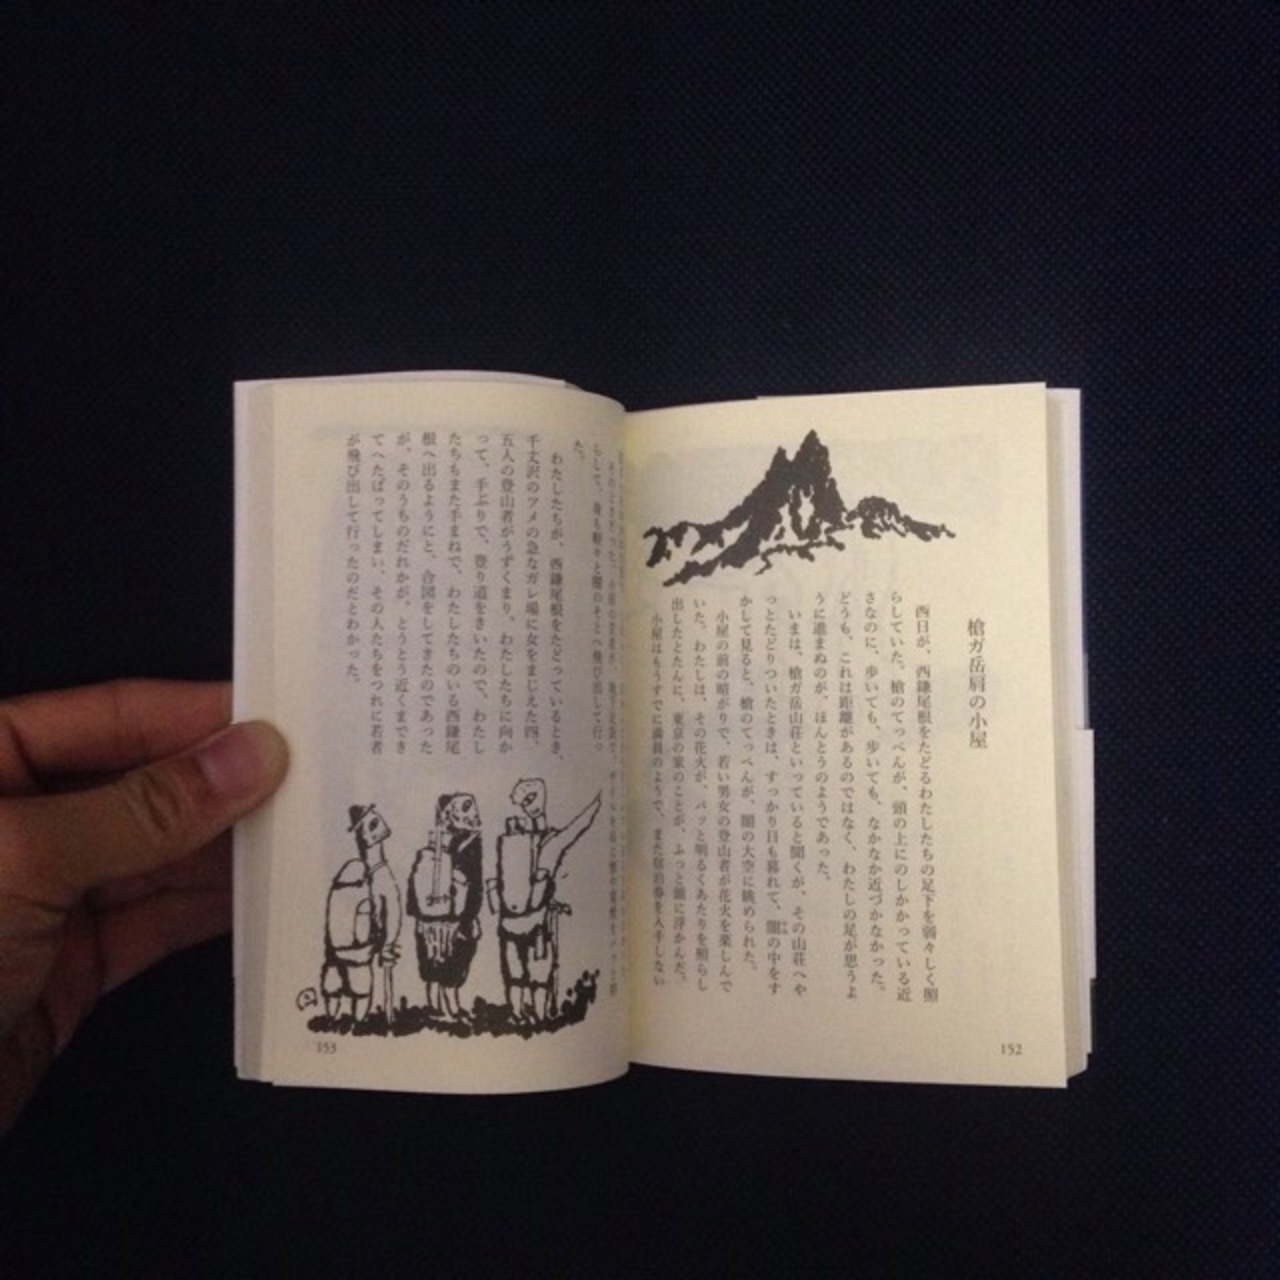 槍ガ岳肩の小屋
西日が、西鎌尾根をたどるわたしたちの足下を弱々しく照
らしていた。槍のてっぺんが、頭の上にのしかかっている近
さなのに、歩いても、歩いても、なかなか近づかなかった。
どうも、これは距離があるのではなく、わたしの足が思うよ
うに進まぬのが、ほんとうのようであった。
いまは、槍ガ岳山荘といっていると聞くが、その山荘へや
っとたどりついたときは、すっかり日も暮れて、闇の中をす
かして見ると、槍のてっぺんが、闇の大空に眺められた。
小屋の前の暗がりで、若い男女の登山者が花火を楽しんで
いた。わたしは、その花火が、パッと明るくあたりを照らし
出したとたんに、東京の家のことが、ふっと頭に浮かんだ。
小屋はもうすでに満員のようで、まだ宿泊券を入手しない
152
らして、身も軽々と闇のそとへ飛び出して行っ
た。
わたしたちが、西鎌尾根をたどっているとき、
千丈沢のツメの急なガレ場に女をまじえた四、
五人の登山者がうずくまり、わたしたちに向か
って、手ぶりで、登り道をきいたので、わたし
たちもまた手まねで、わたしたちのいる西鎌尾
根へ出るようにと、合図をしてきたのであった
が、そのうちのだれかが、とうとう近くまでき
てへたばってしまい、その人たちをつれに若者
が飛び出して行ったのだとわかった。
153